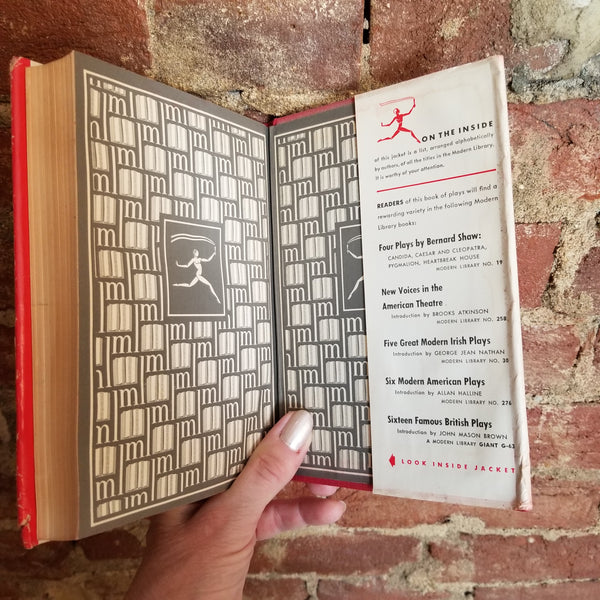 ON THE INSIDE
of this jacket is a list, arranged alphabetically
by authors, of all the titles in the Modern Library.
It is worthy of your attention.
READERS of this book of plays will find a
rewarding variety in the following Modern
Library books:
Four Plays by Bernard Shaw:
CANDIDA, CAESAR AND CLEOPATRA,
PYGMALION, HEARTBREAK HOUSE
MODERN LIBRARY NO. 19
New Voices in the
American Theatre
Introduction by BROOKS ATKINSON
MODERN LIBRARY NO. 258
Five Great Modern Irish Plays
Introduction by GEORGE JEAN NATHAN
MODERN LIBRARY NO. 30
Six Modern American Plays
Introduction by ALLAN HALLINE
MODERN LIBRARY NO. 276
Sixteen Famous British Plays
Introduction by JOHN MASON BROWN
A MODERN LIBRARY GIANT G-63
LOOK INSIDE JACKET